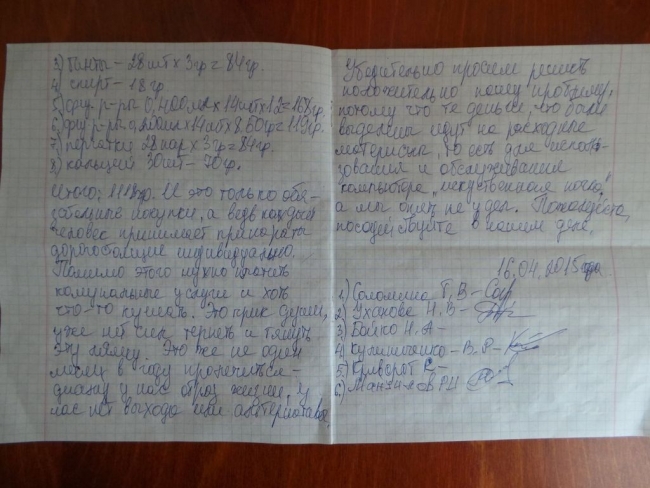 3) Бинты - 28шт х 3гр = 84гр.
4) спирт - 18гр.
5) физ р-ры 0,400мл х 14шт х 12 = 168гр.
6) физ р-ры 0,200мл х 14шт х 8.50гр = 119гр.
7) перчатки 28пар х 3гр = 84гр.
8) кальций 30шт - 70гр.
Итого: 1118гр. И это только обя-
зательные покупки, а ведь каждый
человек принимает препараты
дорогостоящие индивидуально.
Помимо этого нужно платить
комунальные услуги и хоть
что-то кушать. Это крик души,
уже нет сил терпеть и тянуть
эту лямку. Это же не один
месяц в году пролечится -
диализ у нас образ жизни. У
нас нет выхода или альтернативы.
Убедительно просим решить
положительно нашу проблему,
потому что те деньги, что были
выделены идут на расходные
материалы, то есть для использо-
зования и обслуживания
компьютера "искуственная почка",
а мы опять не у дел. Пожалуйста,
посодействуйте в нашем деле.
16.04.2015 года
1) Соломина Т.В -
2) Ухакова Н.В -
3) Бойко Н.А -
4) - В.Р -
5) Криворот
6)